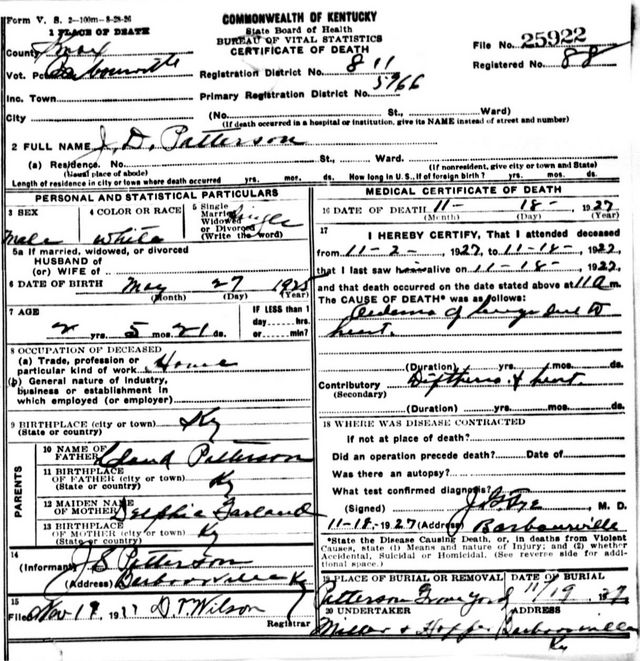 Form V. S. 2-100m-8-28-26
COMMONWEALTH OF KENTUCKY
State Board of Health
BUREAU OF VITAL STATISTICS
CERTIFICATE OF DEATH
1 PLACE OF DEATH
County Knox
File No. 25922
Vot. Pct. Barbourville
Registration District No. 811
Registered No. 88
Inc. Town
Primary Registration District No. 5966
City (No. St., Ward)
(If death occurred in a hospital or institution, give its NAME instead of street and number)
2 FULL NAME J. D. Patterson
(a) Residence. No. St., Ward.
(Usual place of abode) (If nonresident, give city or town and State)
Length of residence in city or town where death occurred yrs. mos. ds. How long in U.S., if of foreign birth? yrs. mos. ds.
PERSONAL AND STATISTICAL PARTICULARS
3 SEX 4 COLOR OR RACE 5 Single Married Widowed or Divorced (Write the word)
Male White Single
5a If married, widowed, or divorced
HUSBAND of
(or) WIFE of
6 DATE OF BIRTH May 27 1925
(Month) (Day) (Year)
7 AGE IF LESS than 1
2 yrs. 5 mos. 21 ds. day hrs. or min.?
8 OCCUPATION OF DECEASED
(a) Trade, profession or particular kind of work Home
(b) General nature of industry, business or establishment in which employed (or employer)
9 BIRTHPLACE (city or town) Ky
(State or country)
PARENTS
10 NAME OF FATHER Patterson
11 BIRTHPLACE OF FATHER (city or town) Ky
(State or country)
12 MAIDEN NAME OF MOTHER Delphia Garland
13 BIRTHPLACE OF MOTHER (city or town) Ky
(State or country)
14
(Informant) J S Patterson
(Address) Barbourville Ky
15
Filed Nov 19 D. T. Wilson
Registrar
MEDICAL CERTIFICATE OF DEATH
16 DATE OF DEATH 11- 18- 1927
(Month) (Day) (Year)
17
I HEREBY CERTIFY, That I attended deceased
from 11-2-, 1927, to 11-18-, 1927,
that I last saw him alive on 11-18-, 1927,
and that death occurred on the date stated above at 11 a m.
The CAUSE OF DEATH* was as follows:
Oedema of lungs due to
heart.
(Duration) yrs. mos. ds.
Contributory Diptheria & heart.
(Secondary)
(Duration) yrs. mos. ds.
18 WHERE WAS DISEASE CONTRACTED
If not at place of death?
Did an operation precede death? Date of
Was there an autopsy?
What test confirmed diagnosis?
(Signed) M. D.
11-18-1927 (Address) Barbourville
*State the Disease Causing Death, or, in deaths from Violent
Causes, state (1) Means and nature of Injury; and (2) whether
Accidental, Suicidal or Homicidal. (See reverse side for addi-
tional space.)
19 PLACE OF BURIAL OR REMOVAL DATE OF BURIAL
Patterson Grove Yord 11/19 1927
20 UNDERTAKER ADDRESS
Miller & Barbourville
Ky